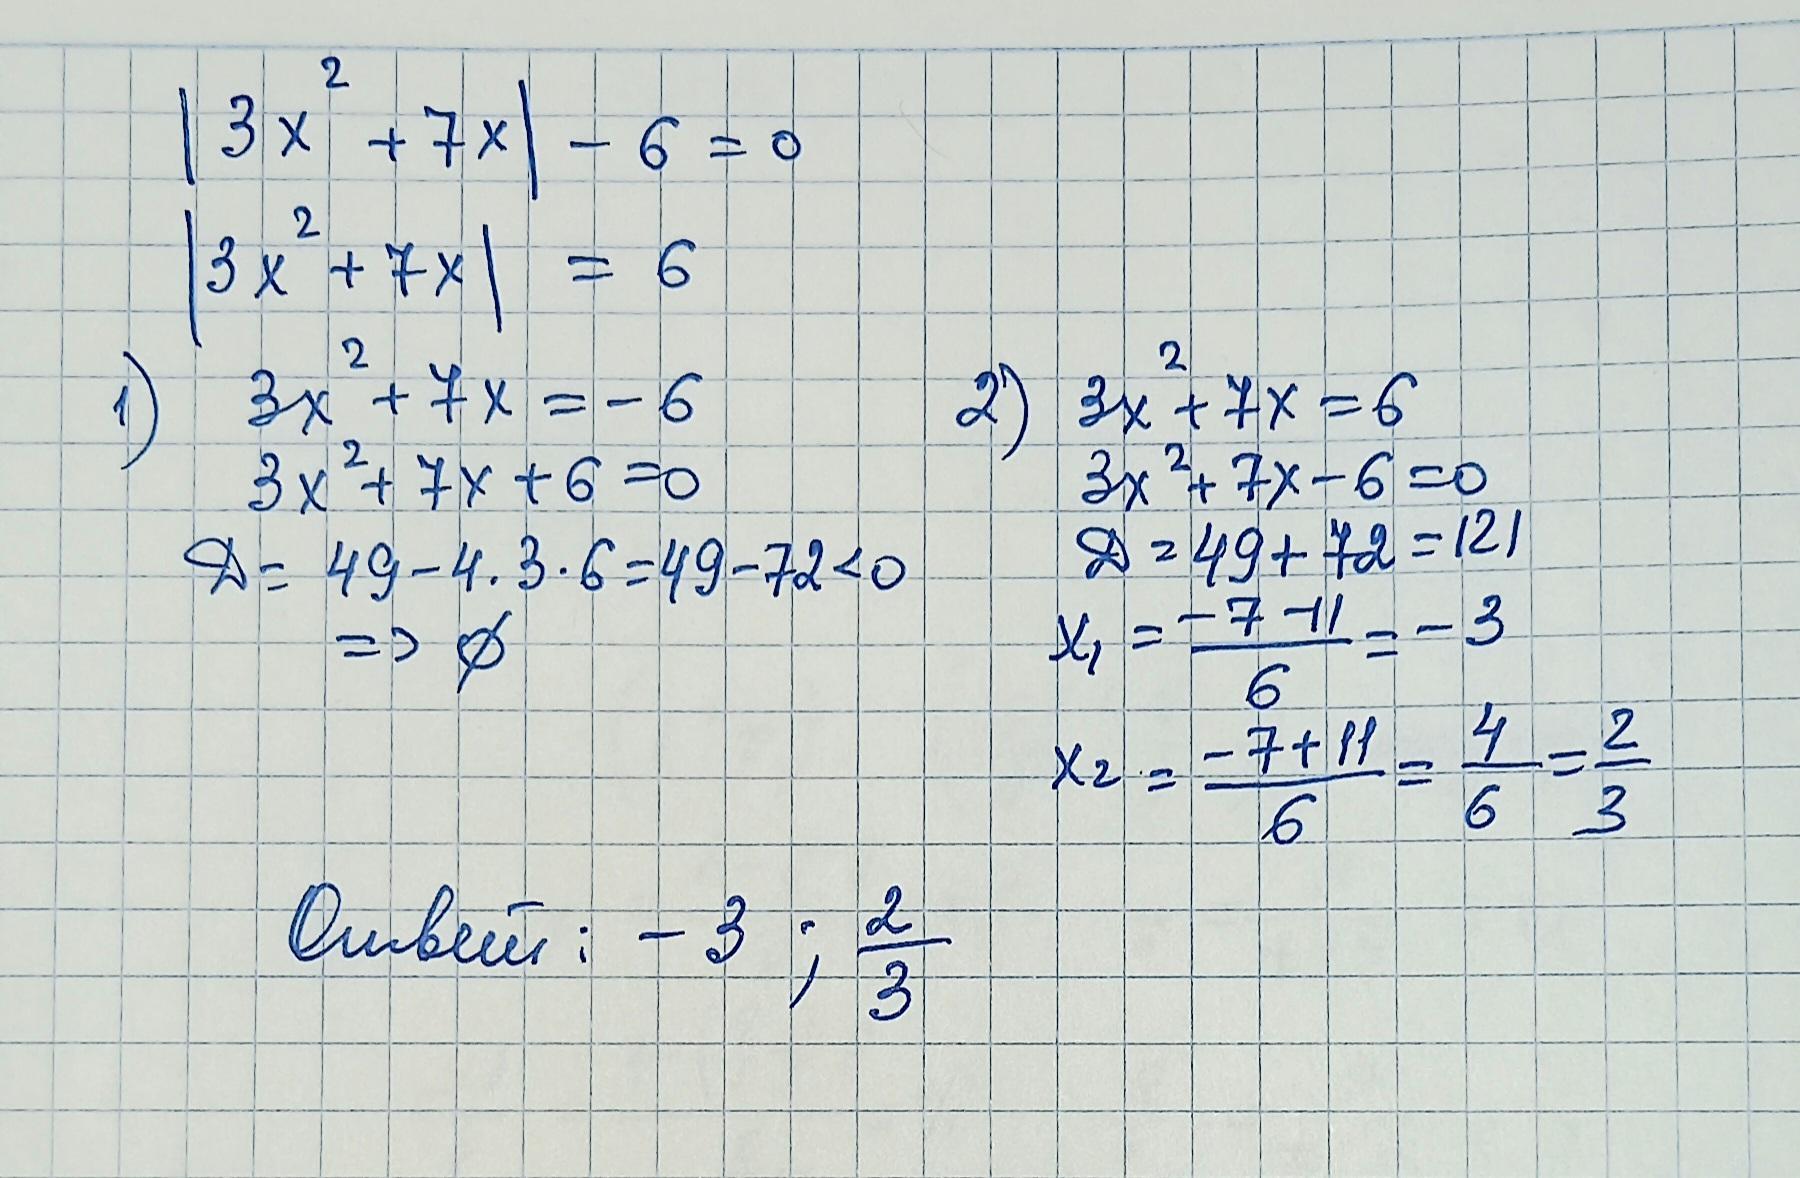 |3x² + 7x| - 6 = 0
|3x² + 7x| = 6
1) 3x² + 7x = - 6
3x² + 7x + 6 = 0
D = 49 - 4 · 3 · 6 = 49 - 72 < 0
=> ∅
2) 3x² + 7x = 6
3x² + 7x - 6 = 0
D = 49 + 72 = 121
x₁ = (-7 - 11)/6 = - 3
x₂ = (-7 + 11)/6 = 4/6 = 2/3
Ответ: - 3 ; 2/3